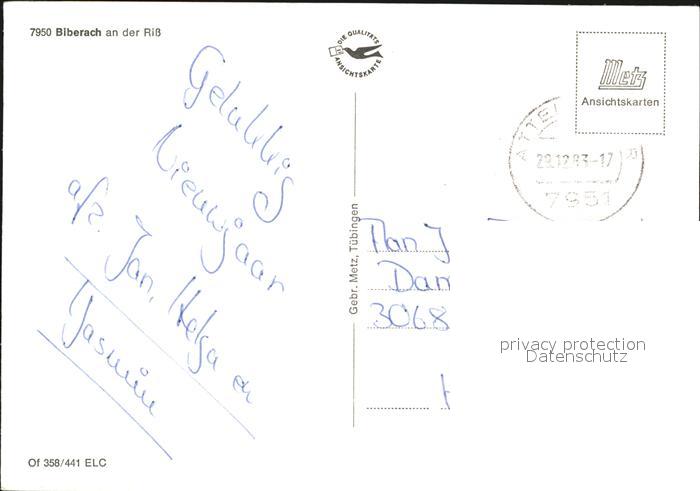 7950 Biberach an der Riß
DIE QUALITÄTS
ANSICHTSKARTE
Metz
Ansichtskarten
29.12.83-17
7951
Gelukkig
Nieuwjaar
afz. Jan, Helga en
Yasmin
Gebr. Metz, Tübingen
Dan
3068
privacy protection
Datenschutz
Of 358/441 ELC